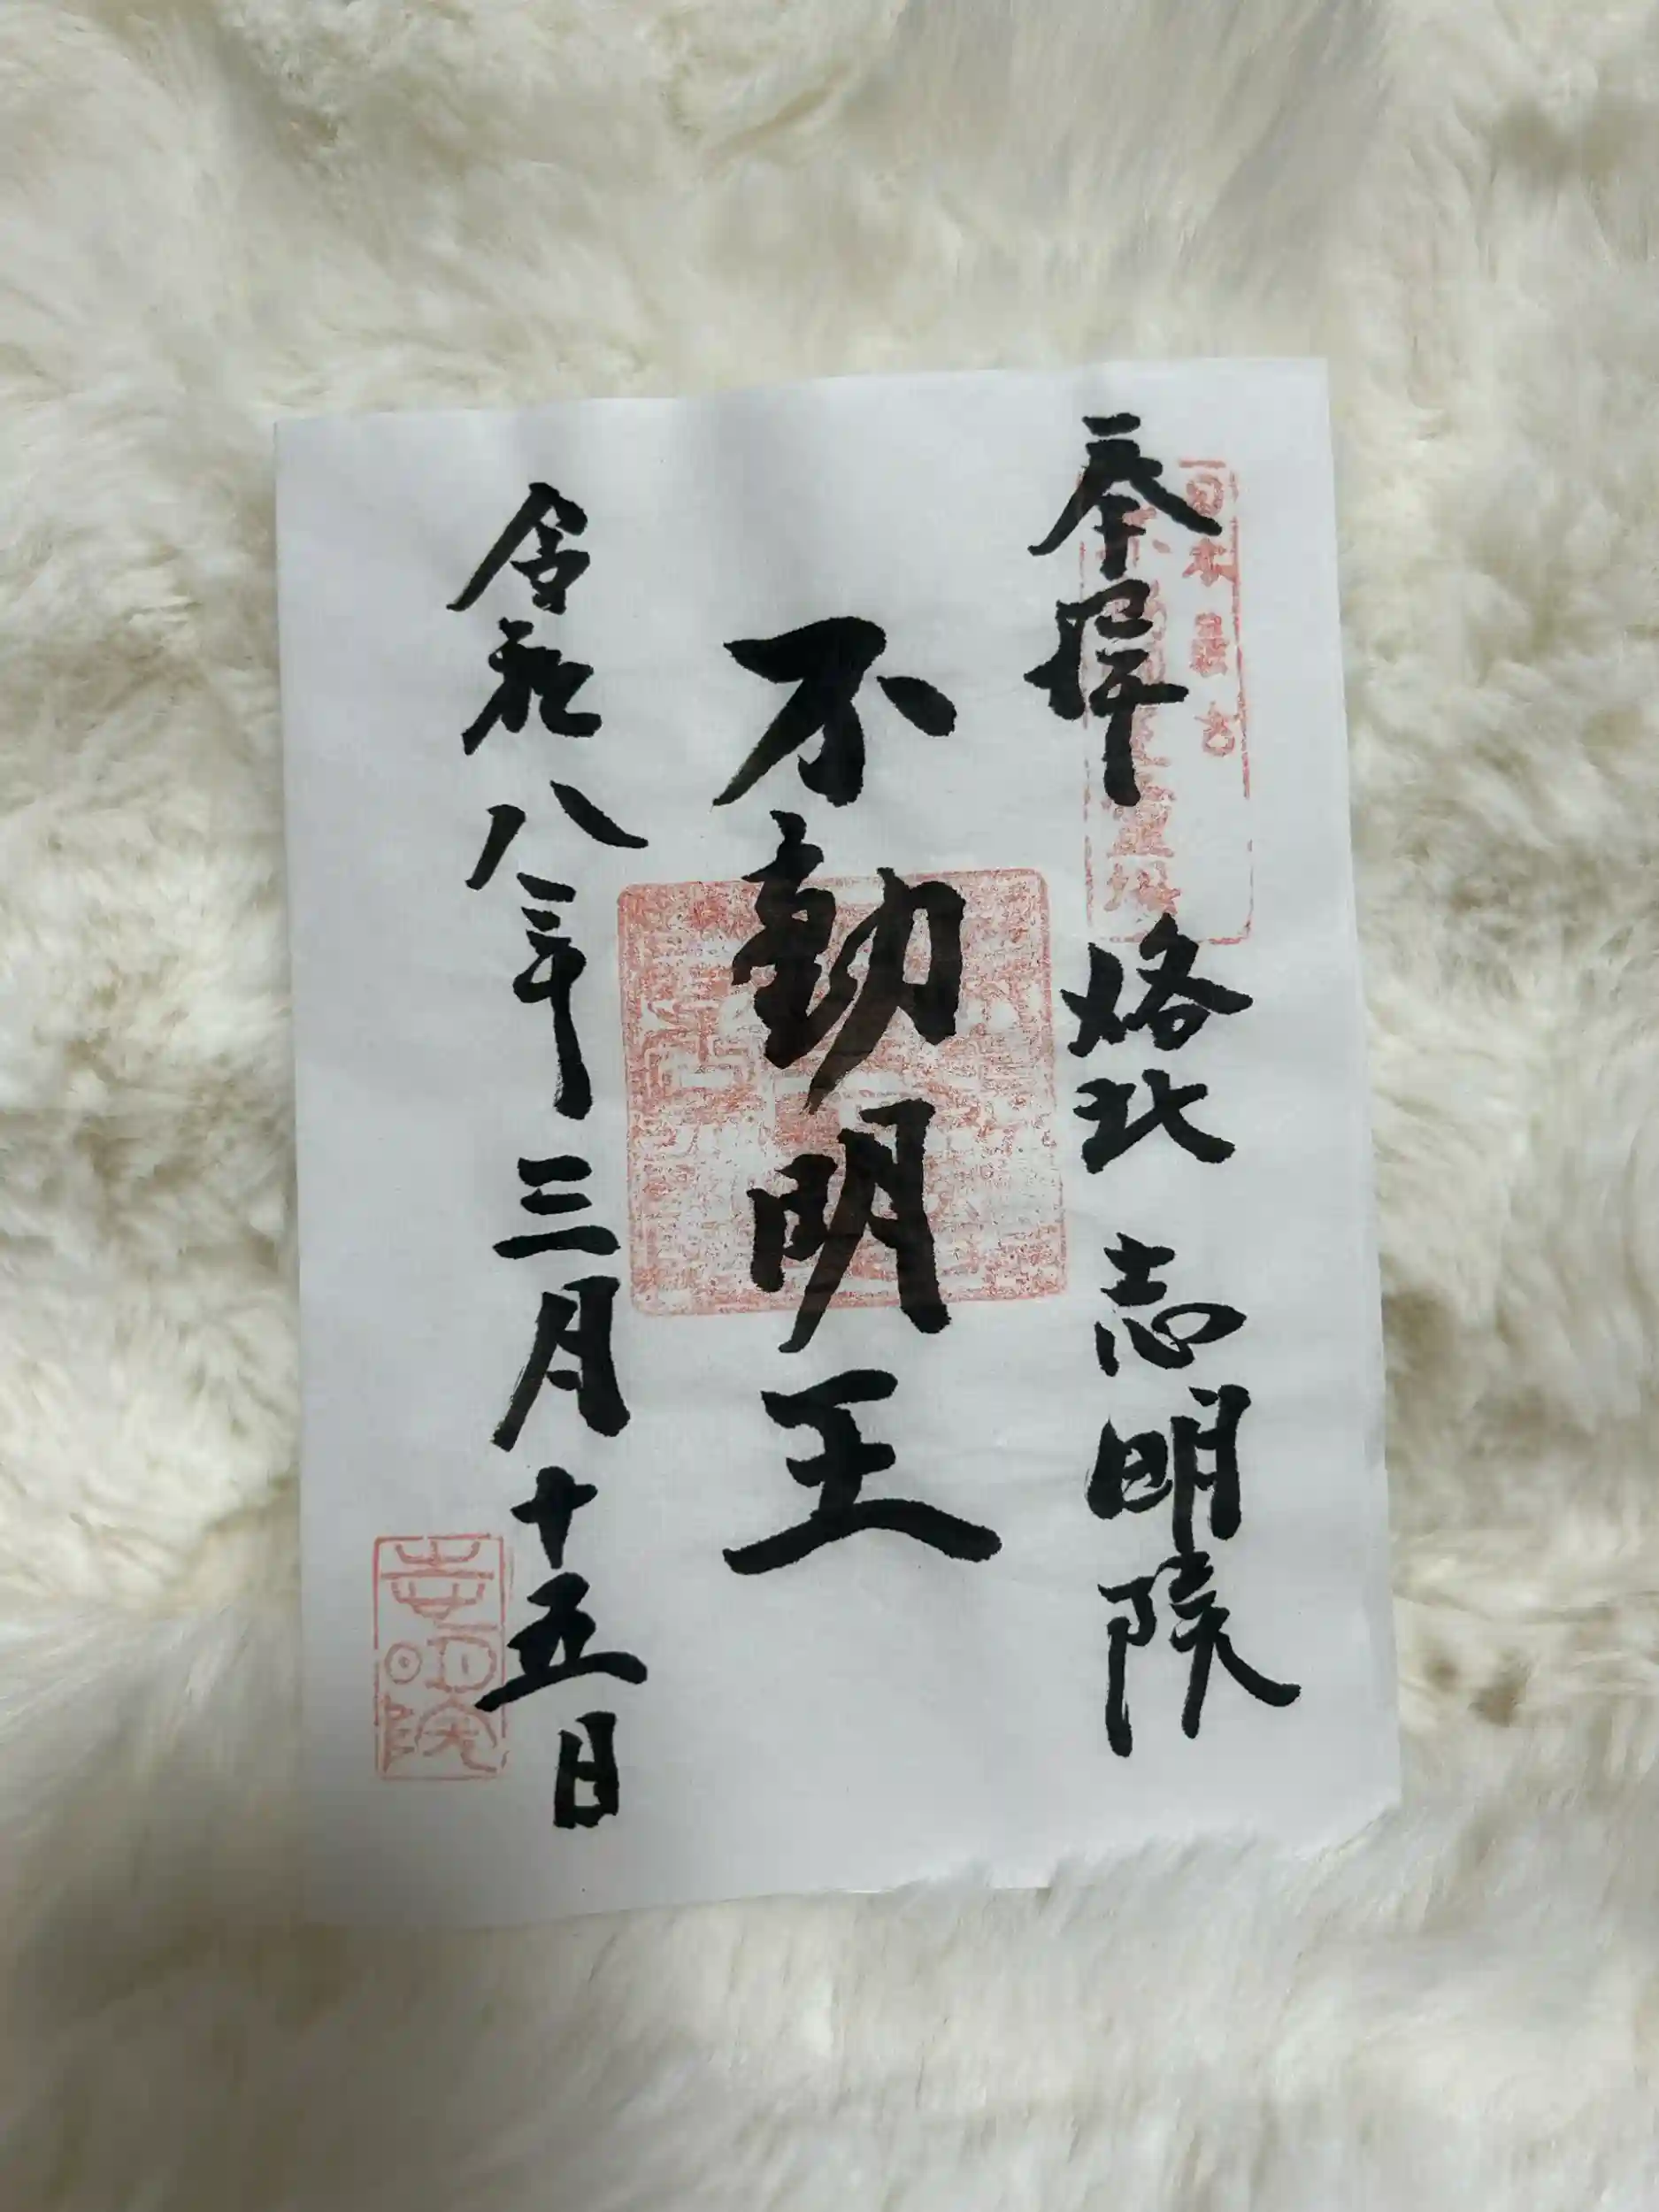 奉拝 洛北 志明院
日本最古
不動明王
令和八年三月十五日
志明院